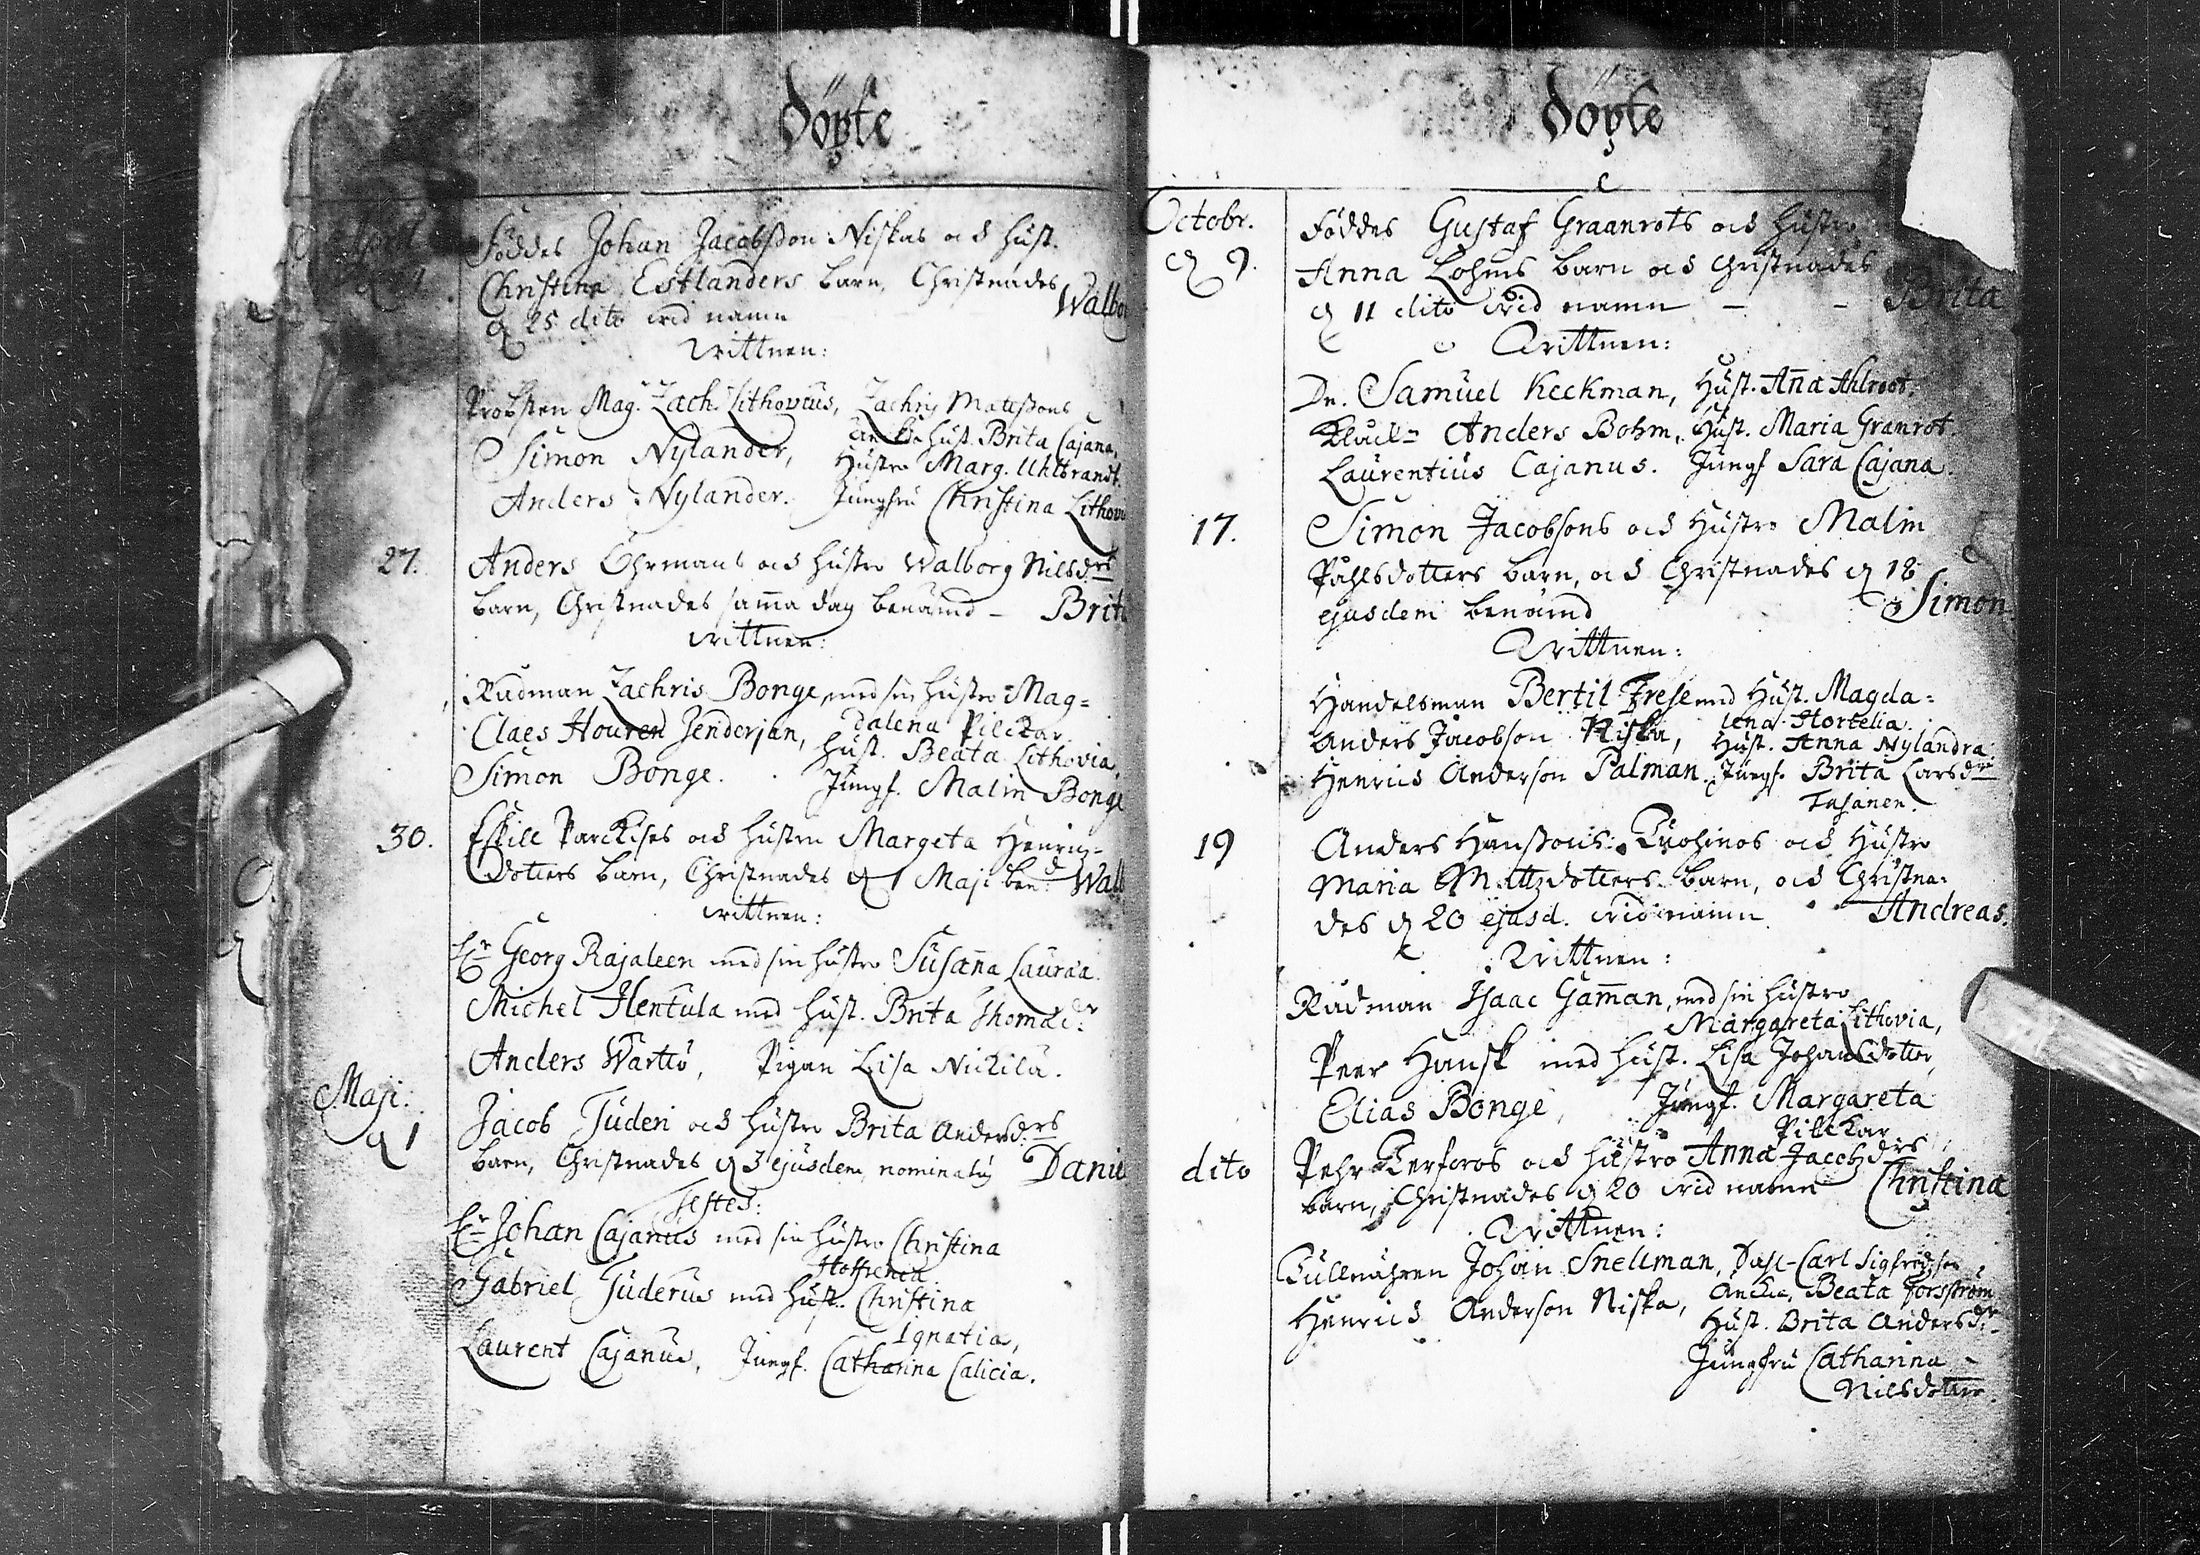 Döpte
April
Föddes Johan Jacobsson Niskas och hust.
Christina Estlanders barn, Christnades
d 25 dito wid namn Walbor
Wittnen:
Probsten Mag. Zach. Lithovius, Zachris Matessons
Enkia hust. Brita Cajana,
Simon Nylander, Hustro Marg. Uhlbrandt.
Anders Nylander. Jungfru Christina Lithovi
27. Anders Öhrmans och hustro Walborg Nilsdrs
barn, Christnades sama dag benämd - Brit
Wittnen:
Rådman Zachris Bonge, med sin hustro Mag=
dalena Pilckar
Claes Houren Jenderjan, hust. Beata Lithovia,
Simon Bonge. Jungf. Malin Bonge
30. Eskill Parckises och hustru Margeta Henrics-
dotters barn, Christnades d 1 Maji bend Walb
Wittnen:
Hr Georg Rajaleen med sin hustro Susana Lauræa.
Michel Hentula med hust. Brita Thomædr
Anders Warttio, Pigan Lisa Nickila.
Maji:
d 1 Jacob Tuderi och hustro Brita Andersdrs
barn, Christnades d 3 ejusdem, nominatus Danie
Testes:
Hr Johan Cajanus med sin hustro Christina
Hoffrenia
Gabriel Tuderus med hust. Christina
Ignatia,
Laurent Cajanus, Jungf. Catharina Calicia.
Döpte
Octobr.
d 9. Föddes Gustaf Graanrots och hustro
Anna Lohms barn och Christnades
d 11 dito wid namn - - Brita
Wittnen:
Dn. Samuel Keckman, Hust. Ana Ahlroot.
Anders Bohm, Hust. Maria Granrot.
Laurentius Cajanus. Jungf Sara Cajana.
17. Simon Jacobsons och Hustro Malin
Påhlsdotters barn, och Christnades d 18
ejusdem benämd Simon
Wittnen:
Handelsman Bertil Frese med Hust. Magda=
lena Hortelia.
Anders Jacobson Niska, Hust. Anna Nylandra
Henrics Anderson Palman. Jungf. Brita Larsdr
Tasanen.
19 Anders Hanssons och Hustro
Maria Mattzdotters barn, och Christna=
des d 20 ejusd. wid namn Andreas.
Wittnen:
Rådman Isaac Gaman, med sin hustro
Margareta Lithovia,
Peer Hansk med hust. Lisa Johansdotter,
Elias Bonge, Jungf. Margareta
Pilckar
dito Pehr Kerforos och hustro Anna Jacobzdrs
barn, Christnades d 20 wid namn Christina
Wittnen:
Tullnähren Johan Snellman, Carl Sigfredzson
Enckia, Beata Forsström
Henrich Anderson Niska, Hust. Brita Andersdr.
Jungfru Catharina
Nilsdotter.